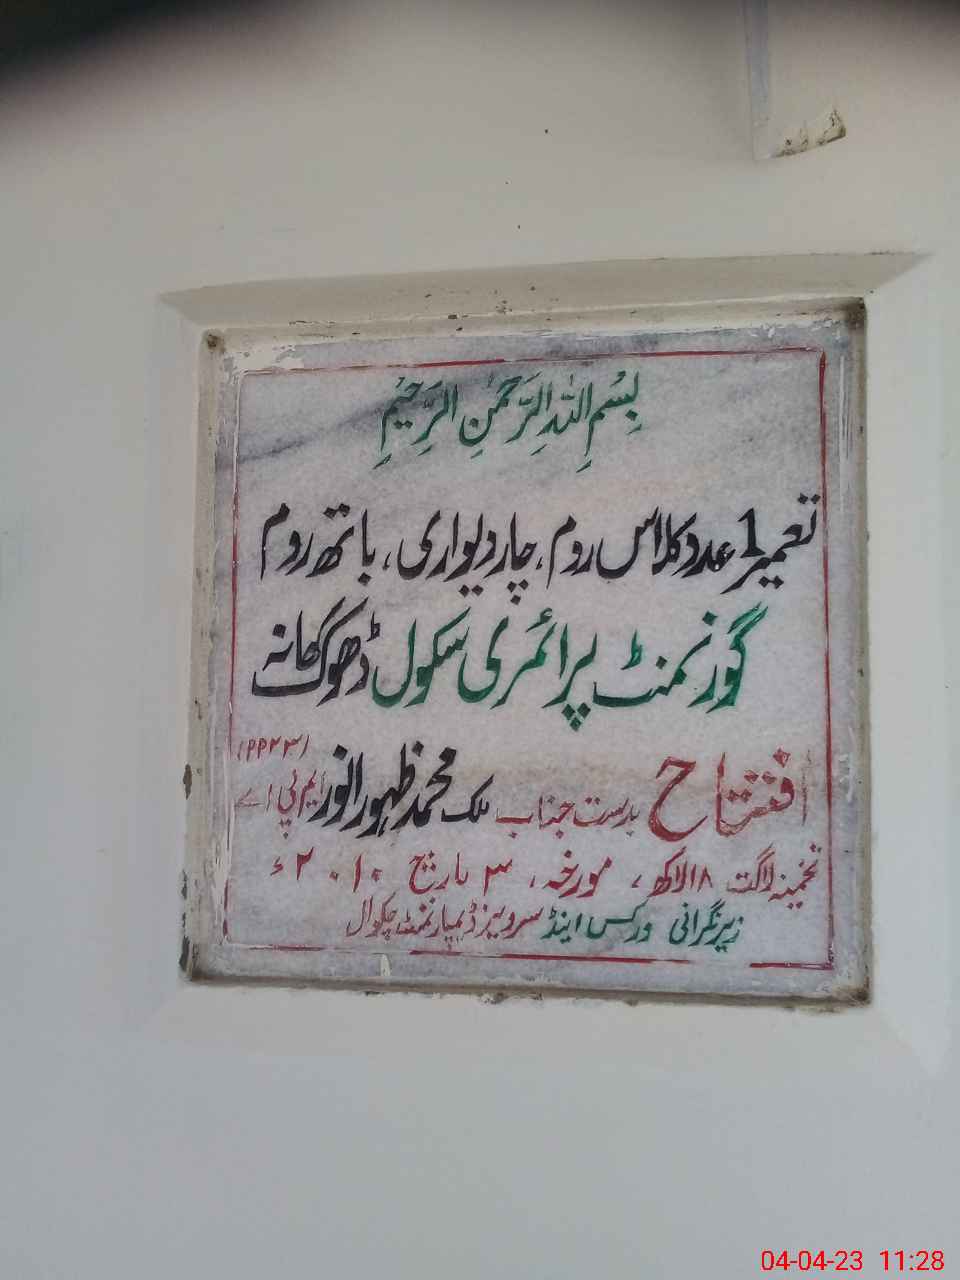 بِسْمِ اللّٰہِ الرَّحْمٰنِ الرَّحِیْمِ
تعمیر 1 عدد کلاس روم، چار دیواری، باتھ روم
گورنمنٹ پرائمری سکول ڈھوک گھانہ
افتتاح بدست جناب ملک محمد ظہور انور ایم پی اے (PP23)
تخمینہ لاگت ۱۸ لاکھ، مورخہ، ۳ مارچ ۲۰۱۰ء
زیر نگرانی ورکس اینڈ سروسیز ڈیپارٹمنٹ چکوال
04-04-23 11:28